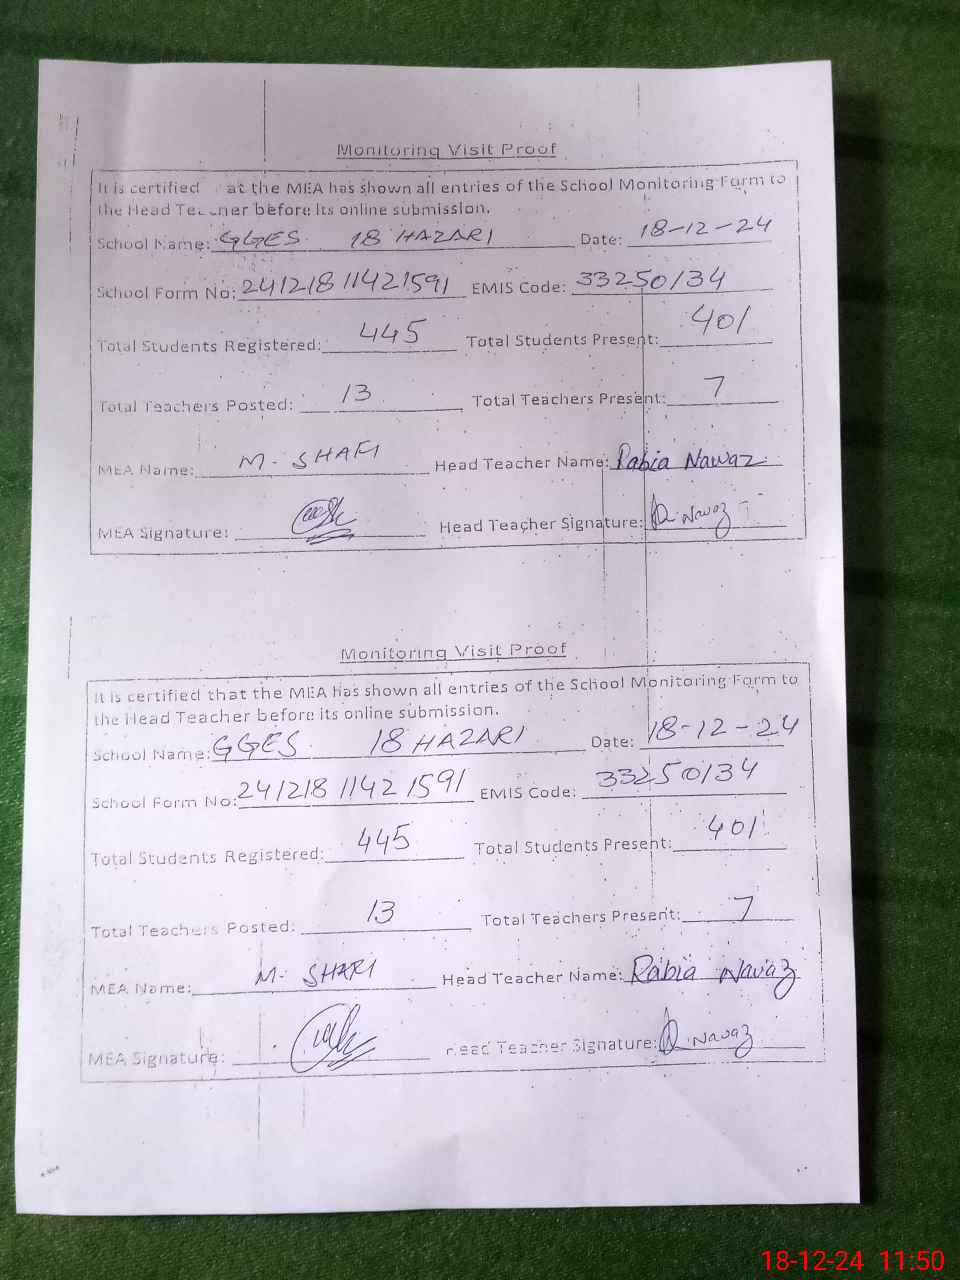 Monitoring Visit Proof
It is certified at the MEA has shown all entries of the School Monitoring Form to
the Head Teacher before its online submission.
School Name: GGES 18 HAZARI Date: 18-12-24
School Form No: 241218 11421591 EMIS Code: 33250134
Total Students Registered: 445 Total Students Present: 401
Total Teachers Posted: 13 Total Teachers Present: 7
MEA Name: M. SHAFI Head Teacher Name: Rabia Nawaz
MEA Signature: Head Teacher Signature: R. Nawaz
Monitoring Visit Proof
It is certified that the MEA has shown all entries of the School Monitoring Form to
the Head Teacher before its online submission.
School Name: GGES 18 HAZARI Date: 18-12-24
School Form No: 241218 1142 1591 EMIS Code: 33250134
Total Students Registered: 445 Total Students Present: 401
Total Teachers Posted: 13 Total Teachers Present: 7
MEA Name: M. SHAFI Head Teacher Name: Rabia Nawaz
MEA Signature: Head Teacher Signature: R. Nawaz
18-12-24 11:50